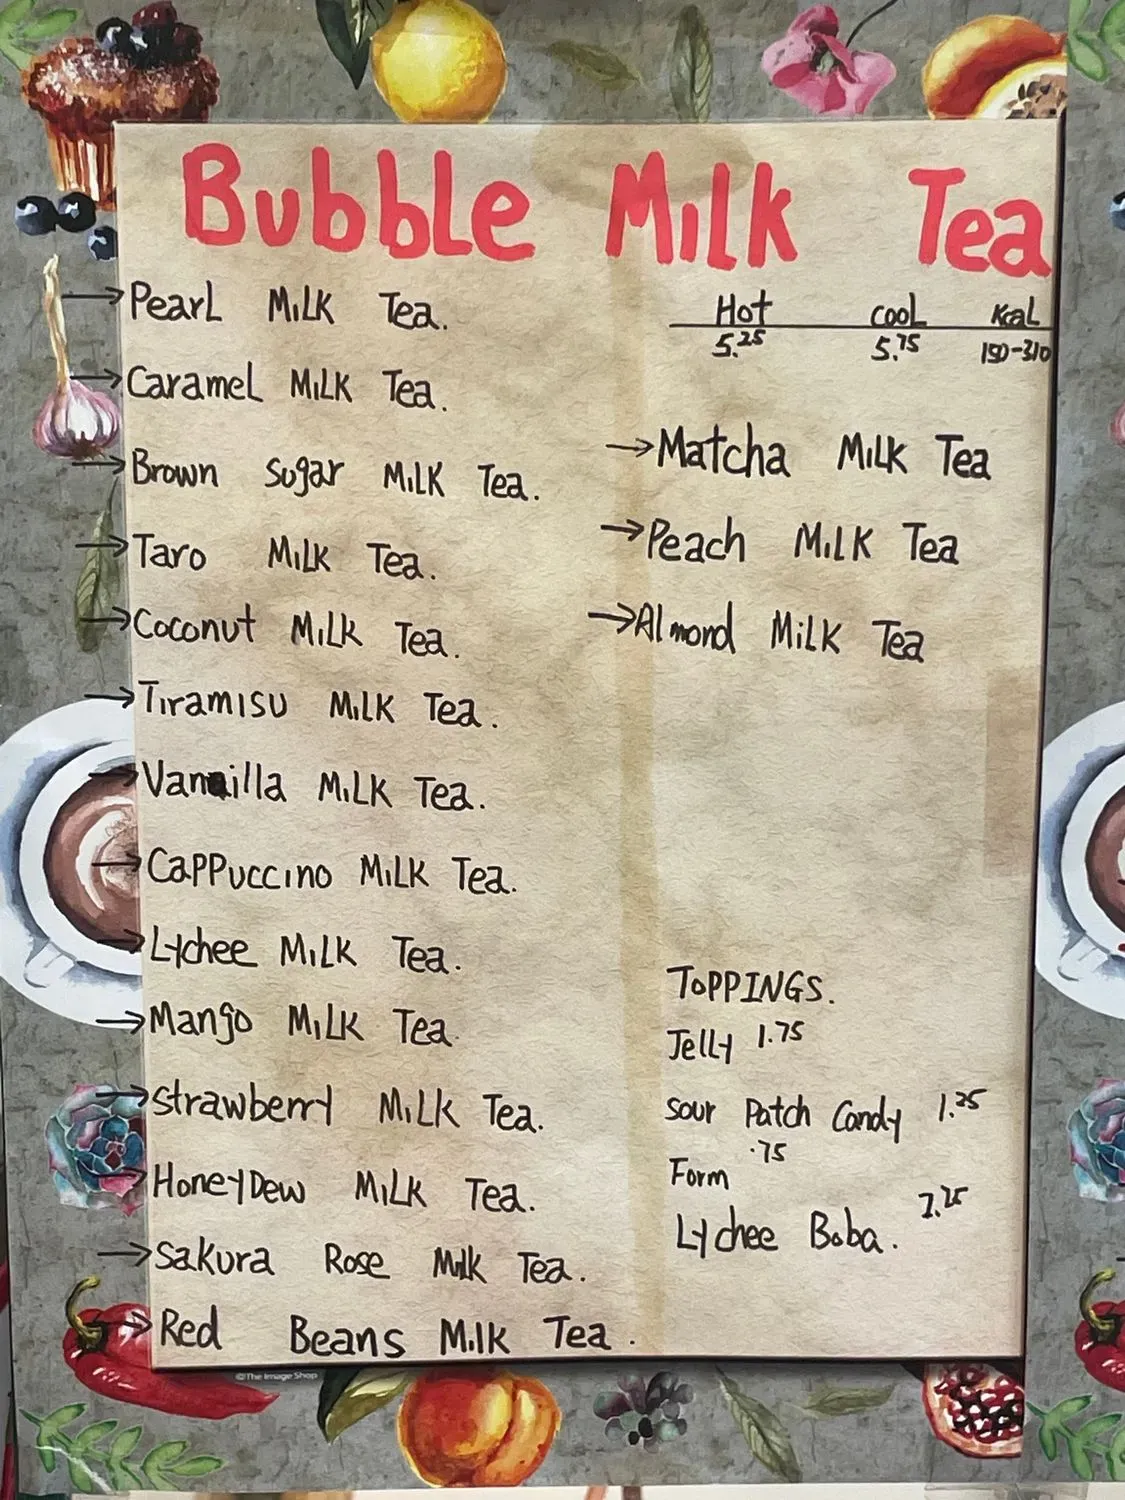 Bubble Milk Tea
Pearl Milk Tea.
Caramel Milk Tea.
Brown Sugar Milk Tea.
Taro Milk Tea.
Coconut Milk Tea.
Tiramisu Milk Tea.
Vanailla Milk Tea.
Cappuccino Milk Tea.
Lychee Milk Tea.
Mango Milk Tea.
Strawberry Milk Tea.
HoneyDew Milk Tea.
Sakura Rose Milk Tea.
Red Beans Milk Tea.
Hot Cool Kcal
5.25 5.75 150-310
Matcha Milk Tea
Peach Milk Tea
Almond Milk Tea
TOPPINGS.
Jelly 1.75
Sour Patch Candy 1.25
Form .75
Lychee Boba.
©The Image Shop